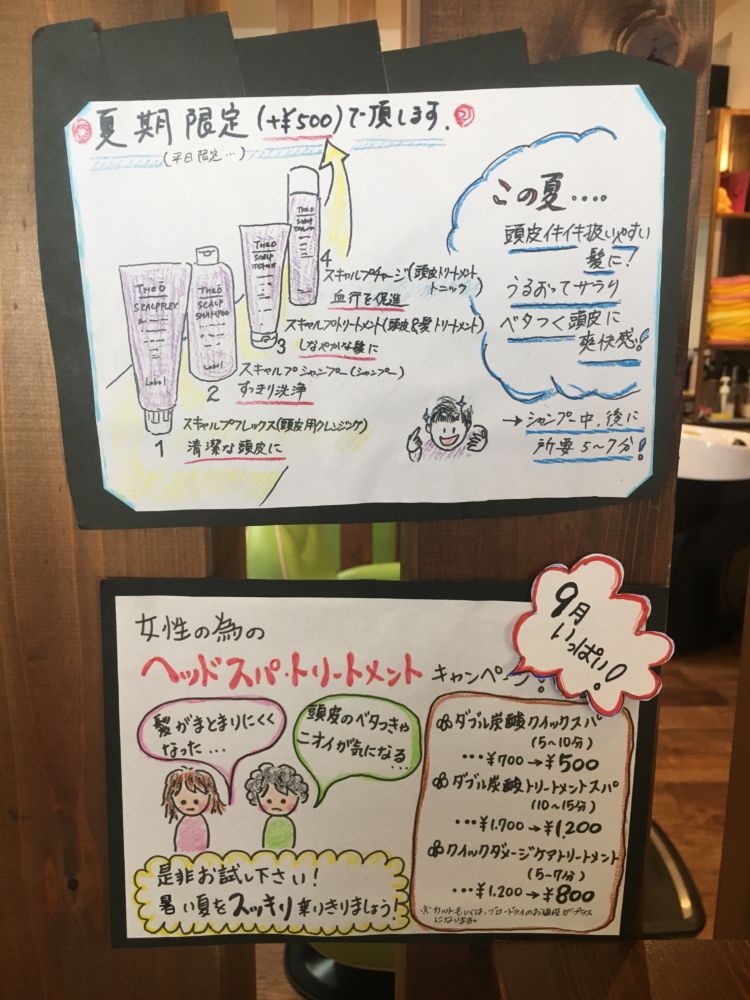 夏期限定(+¥500)で頂します.
(平日限定…)
この夏....
頭皮イキイキ扱いやすい
髪に!
うるおってサラり
ベタつく頭皮に
爽快感!
→シャンプー中,後に
所要5~7分!
4
スキャルプチャージ(頭皮トリートメント
トニック)
血行を促進
3
スキャルプトリートメント(頭皮&髪トリートメント)
しなやかな髪に
2
スキャルプシャンプー(シャンプー)
すっきり洗浄
1
スキャルプフレックス(頭皮用クレンジング)
清潔な頭皮に
THEO
SCALPFLEX
Lebel
THEO
SCALP
SHAMPOO
Lebel
THEO
SCALP
THEO
SCALP
9月
いっぱい!
女性の為の
ヘッドスパ・トリートメント キャンペーン!
髪がまとまりにくく
なった...
頭皮のベタつきや
ニオイが気になる...
ダブル炭酸クイックスパ
(5~10分)
...¥700→¥500
ダブル炭酸トリートメントスパ
(10~15分)
...¥1,700→¥1,200
クイックダメージケアトリートメント
(5~7分)
...¥1,200→¥800
※カットもしくは、ブロードライのお値段がプラス
になります。
是非お試し下さい!
暑い夏をスッキリ乗りきりましょう!